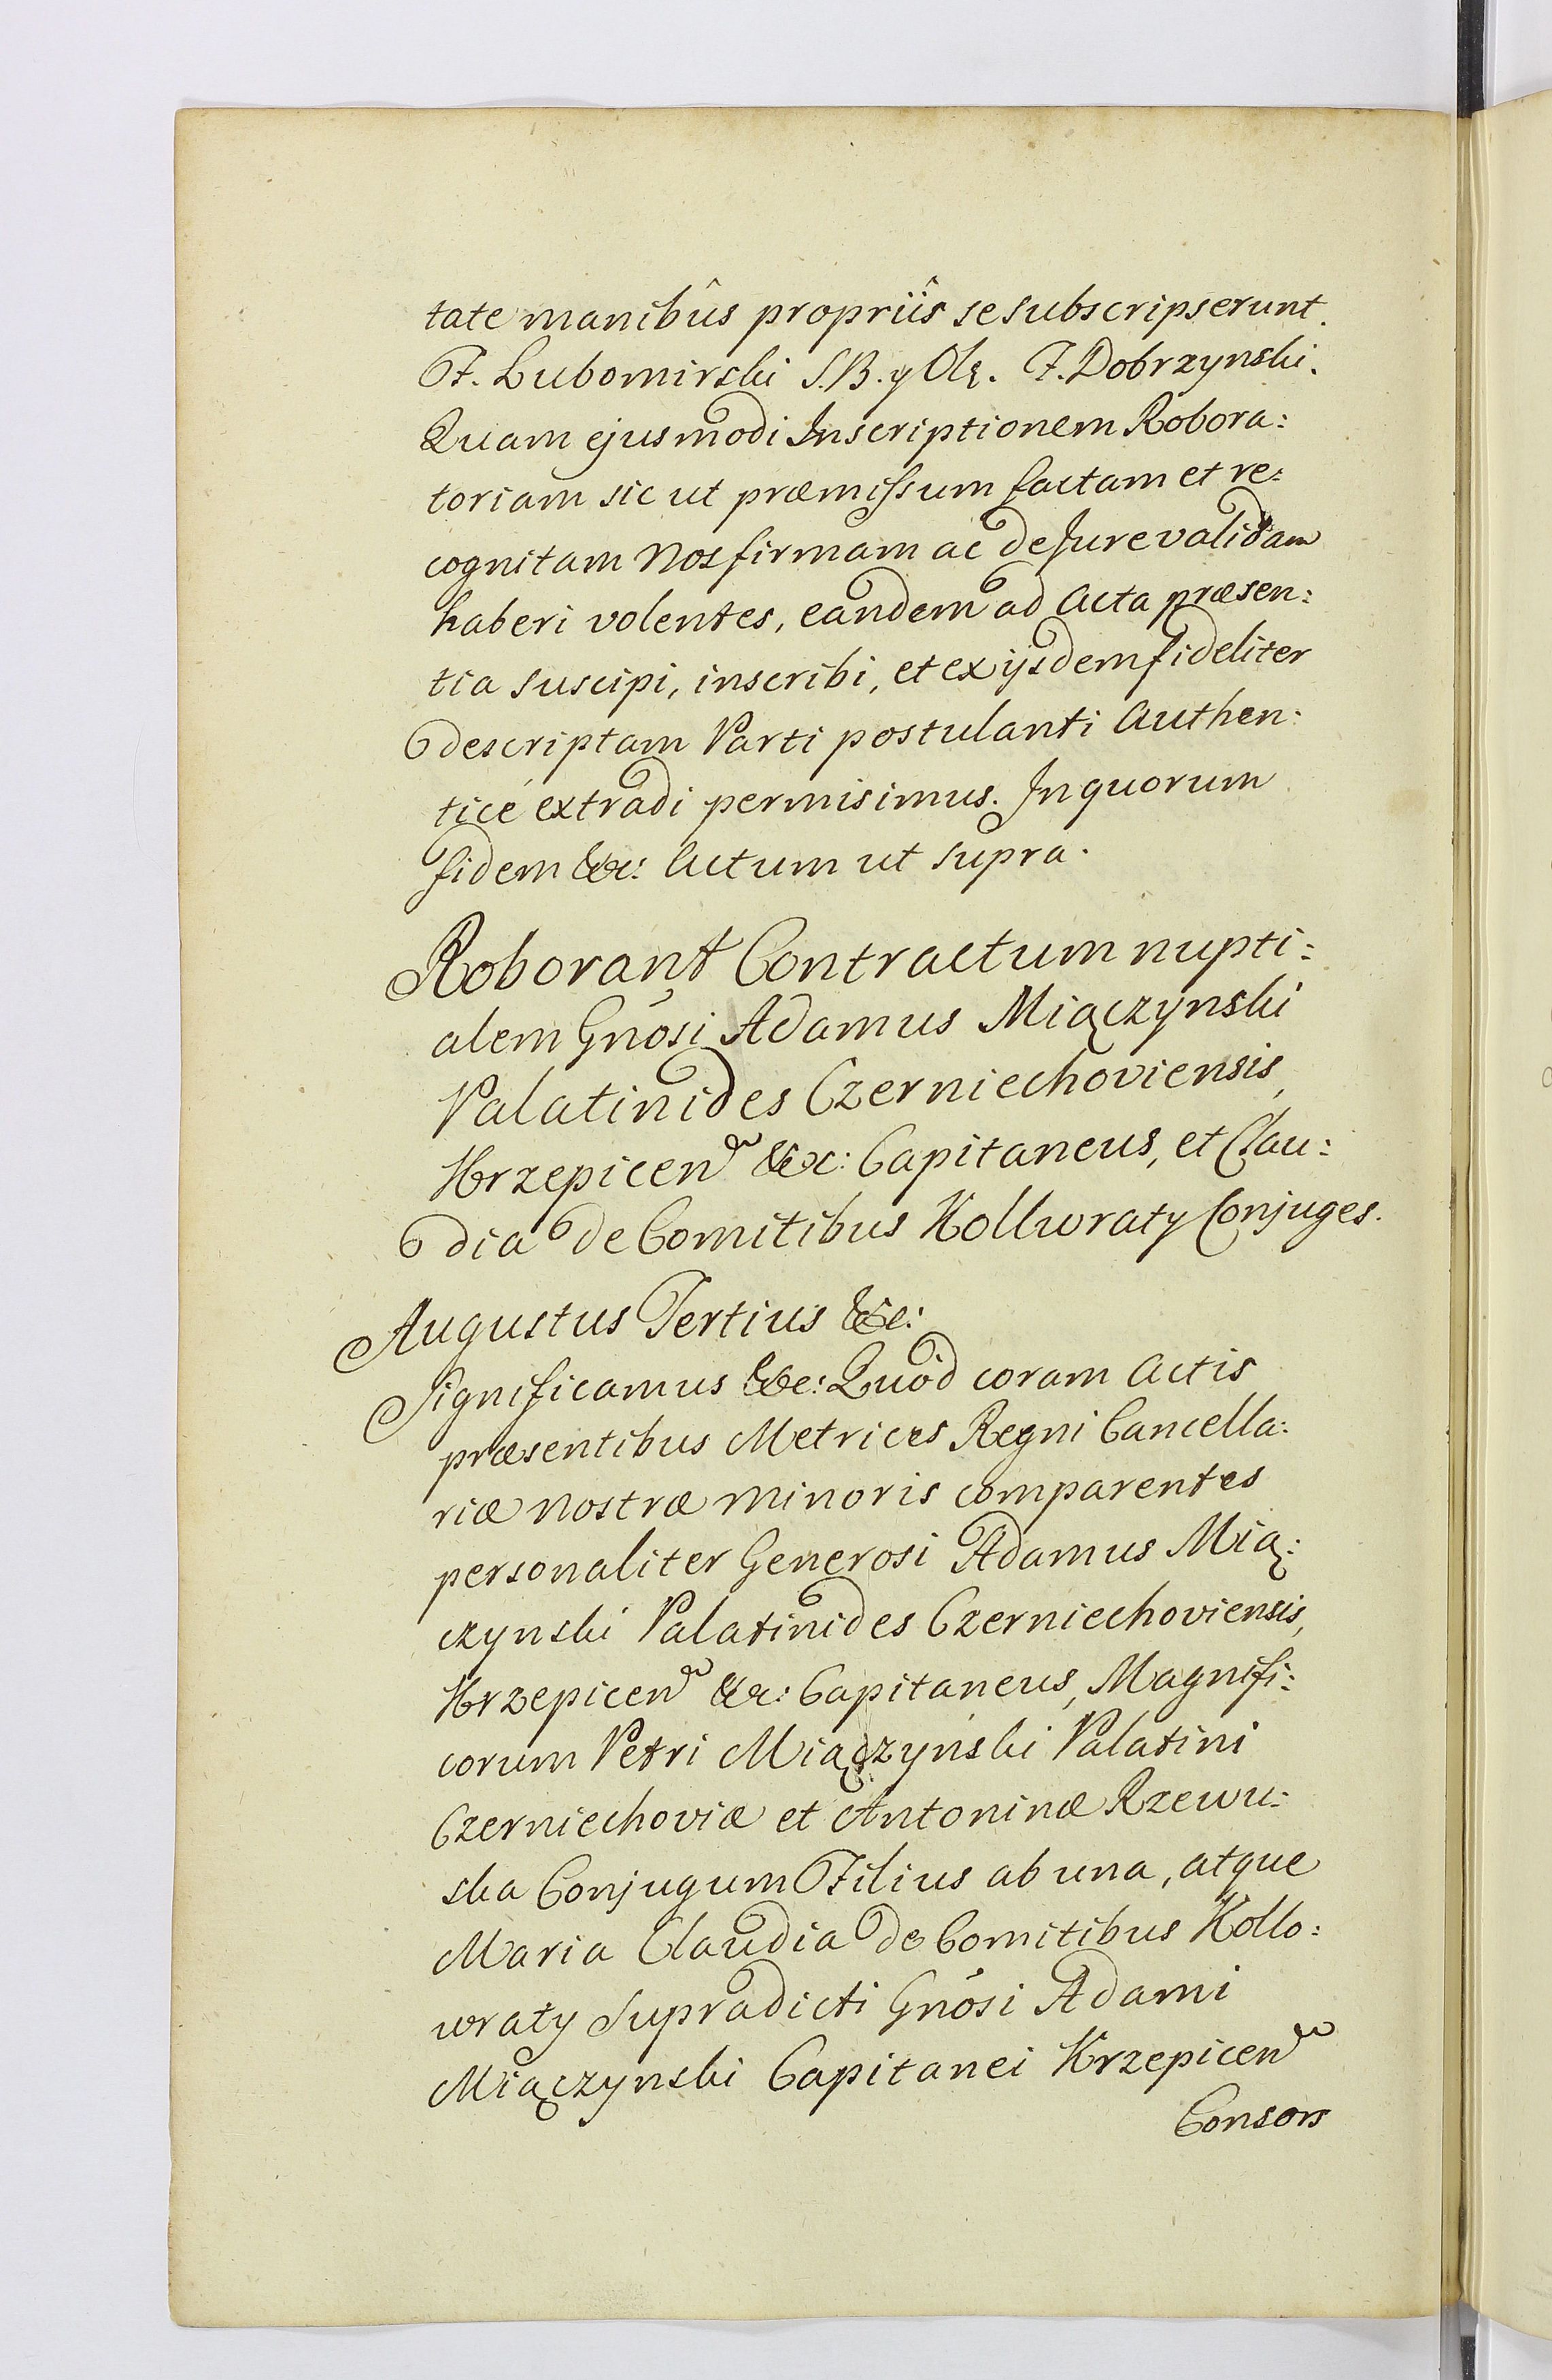 tate manibûs propriîs se subscripserunt.
F. Lubomirski S.B. y Olę. F. Dobrzynski.
Quam ejusmodi Inscriptionem Robora:
toriam sic ut præmissum factam et re:
cognitam Nos firmam ac de Jure validam
haberi volentes, eandem ad Acta præsen:
tia suscipi, inscribi, et ex ijsdem fideliter
descriptam Parti postulanti Authen:
ticé extradi permisimus. In quorum
fidem &c: Actum ut supra.
Roborant Contractum nupti:
alem Gnosi Adamus Miączynski
Palatinides Czerniechoviensis,
Krzepicen &c: Capitaneus, et Clau:
dia de Comitibus Kollwraty Conjuges.
Augustus Tertius &c:
Significamus &c: Quod coram Actis
præsentibus Metrices Regni Cancella:
riæ Nostræ Minoris comparentes
personaliter Generosi Adamus Mią:
czynski Palatinides Czerniechoviensis,
Krzepicen &c: Capitaneus, Magnifi:
corum Petri Miączyński Palatini
Czerniechoviæ et Antoninæ Rzewu:
ska Conjugum Filius ab una, atque
Maria Claudia de Comitibus Kollo:
wraty supradicti Gnosi Adami
Miączynski Capitanei Krzepicen
Consors